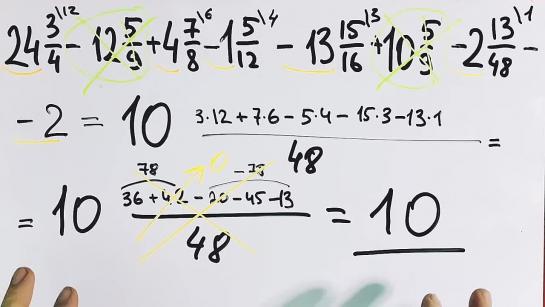 24 3/4 \12 - 12 5/9 + 4 7/8 \6 - 1 5/12 \4 - 13 15/16 \3 + 10 5/9 - 2 13/48 \1 -
- 2 = 10 (3·12 + 7·6 - 5·4 - 15·3 - 13·1)/48 =
78 0 -78
= 10 (36 + 42 - 20 - 45 - 13)/48 = 10